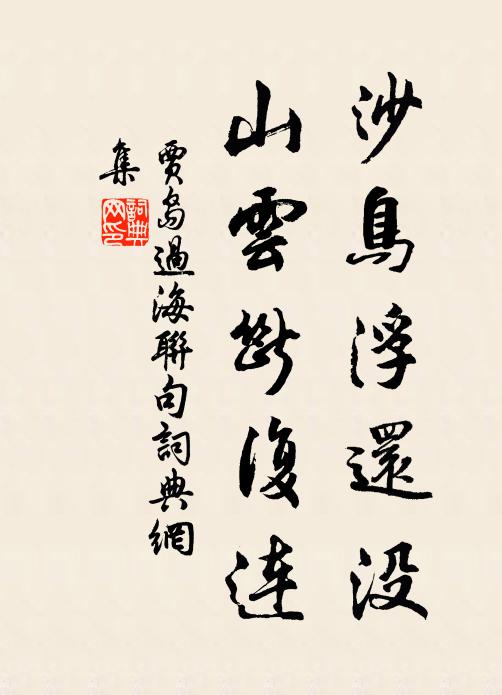 沙鳥浮還没
山雲斷復連
賈島過海聯句詞典網
集
詞典網印